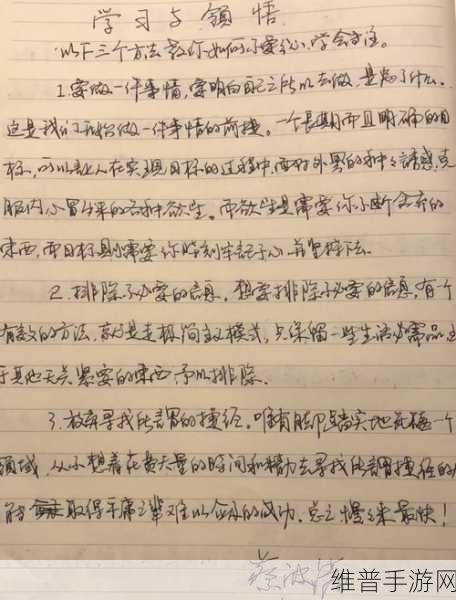 学习与领悟
以下三个方法教你如何不要分心,学会专注。
1.要做一件事情,要明白自己之所以去做,是为了什么。
这是我们开始做一件事情的前提。一个长期而且明确的目
标,可以让人在实现目标的过程中,面对外界的种种誘惑,克
服内心冒出来的各种欲望。而欲望是需要你不断舍弃的
東西,而目标則需要你時刻牢記于心,并坚持下去。
2.排除不必要的信息。想要排除不必要的信息,有个
有效的方法,就是走极简主义模式,只保留一些生活必需品,
于其他无关紧要的東西,予以排除。
3.放弃寻找所謂的捷径。唯有脚踏实地死磕一个
領域,从不想着花费大量的時间和精力去寻找所謂捷径的人
取得平庸之輩难以企及的成功。总之,慢慢来最快!
蔡波
维普手游网